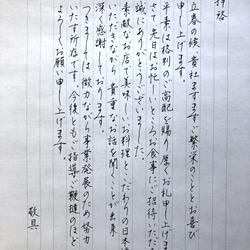 拝啓
立春の候、貴社ますますご繁栄のこととお喜び
申し上げます。
平素は格別のご高配を賜り厚くお礼申し上げます。
先日はお忙しいところお食事にご招待いただき
誠にありがとうございました。
素敵なお店で美味しいお料理とこだわりの日本酒を
いただきながら貴重なお話を聞くことが出来
深く感謝しております。
つきましては微力ながら事業発展のため努力
いたす所存です。今後ともご指導ご鞭撻のほど
よろしくお願い申し上げます。
敬具